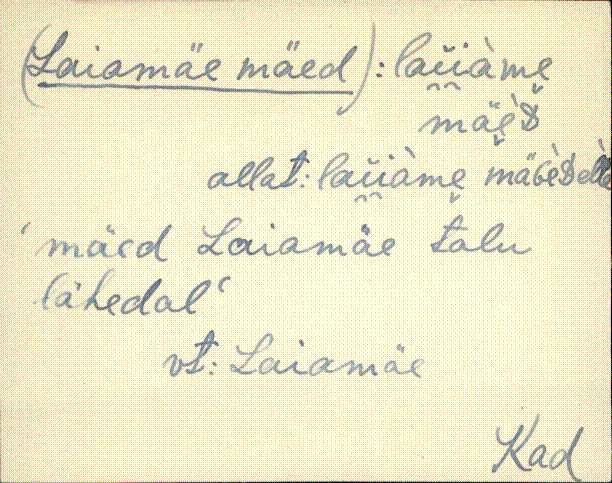 (Laiamäe mäed): laiiàme
mäèD
allat: laiiàme mäeèDelle
'mäed Laiamäe talu
lähedal'
vt: Laiamäe
Kad